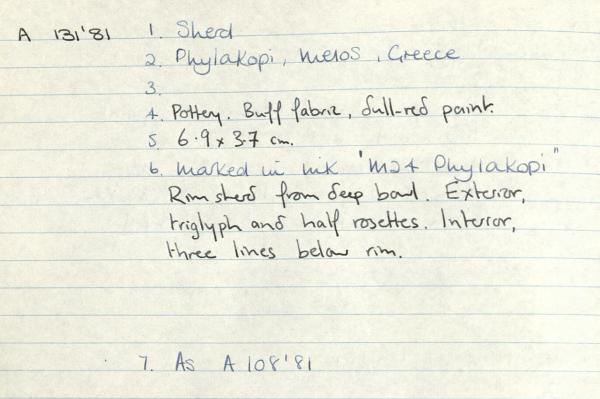 A 131'81 1. Sherd
2. Phylakopi, Melos, Greece
3.
4. Pottery. Buff fabric, dull-red paint.
5. 6.9 x 3.7 cm.
6. Marked in ink 'M24 Phylakopi"
Rim sherd from deep bowl. Exterior,
triglyph and half rosettes. Interior,
three lines below rim.
7. As A 108'81